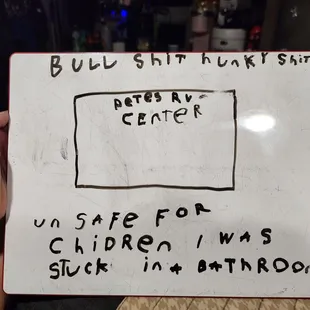 BULL SHIT HUNKY SHIT
PETES RV
CENTER
UN SAFE FOR
CHIDREN I WAS
STUCK IN A BATHROOM